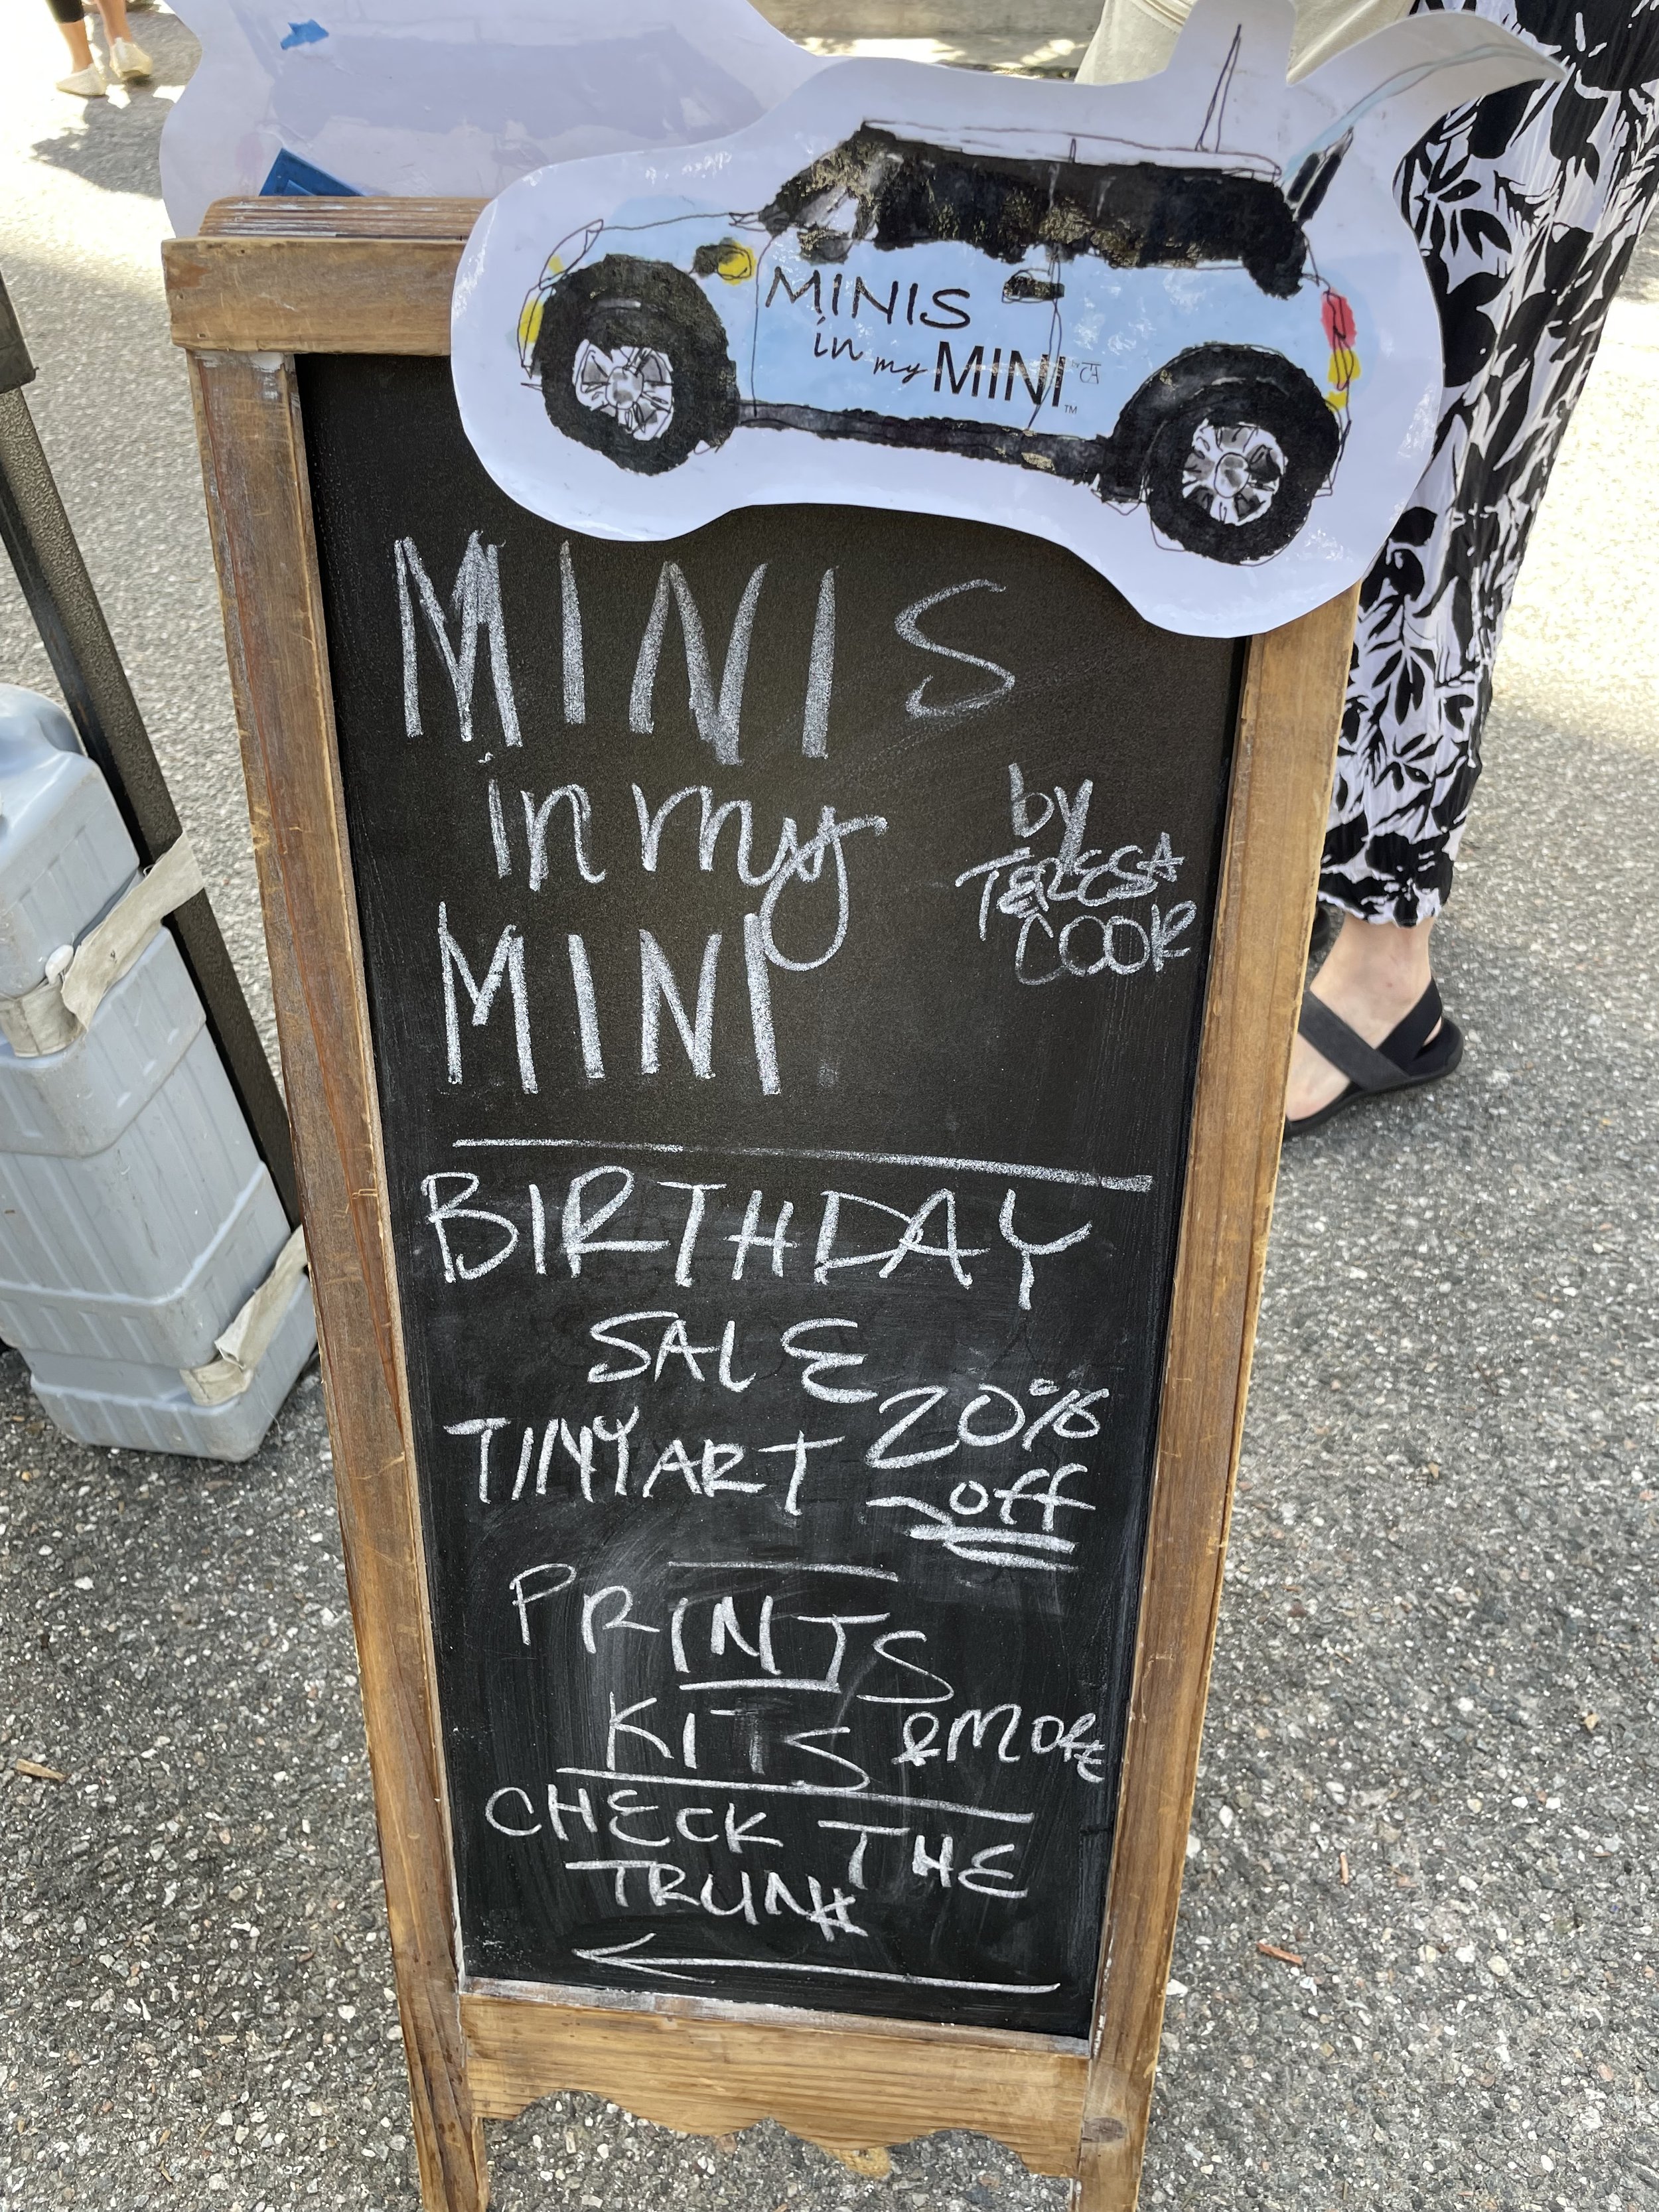 MINIS
in my MINI™
MINIS
in my
MINI
by
TERESA
COOK
BIRTHDAY
SALE
TINY ART 20%
off
PRINTS
KITS & MORE
CHECK THE
TRUNK